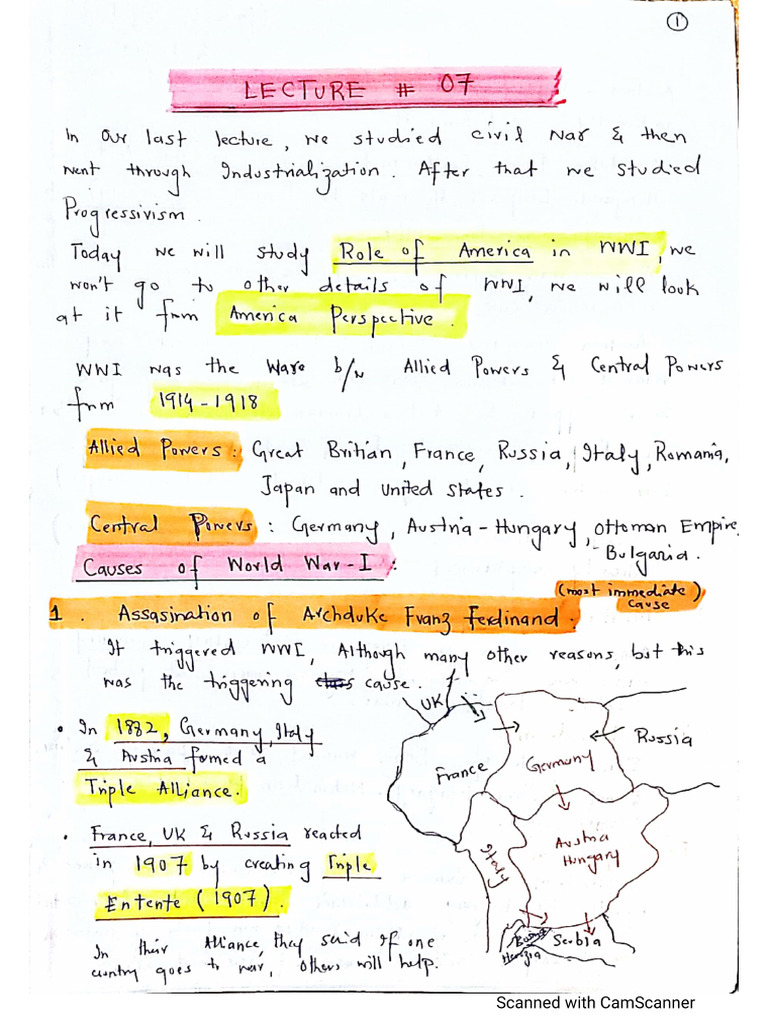 1
LECTURE # 07
In our last lecture, we studied civil war & then
went through Industrialization. After that we studied
Progressivism.
Today we will study Role of America in WWI, we
won't go to other details of WWI, we will look
at it from America Perspective.
WWI was the Ware b/w Allied Powers & Central Powers
from 1914-1918
Allied Powers: Great Britian, France, Russia, Italy, Romania,
Japan and United States.
Central Powers: Germany, Austria-Hungary, Ottoman Empire,
Bulgaria.
Causes of World War-I:
1. Assasination of Archduke Franz Ferdinand. (most immediate cause)
It triggered WWI, Although many other reasons, but this
was the triggering cause.
• In 1882, Germany, Italy
& Austria formed a
Triple Alliance.
• France, UK & Russia reacted
in 1907 by creating Triple
Entente (1907).
In their Alliance, they said if one
country goes to war, others will help.
UK
France
Germany
Russia
Italy
Austria
Hungary
Bosnia
Serbia
Scanned with CamScanner